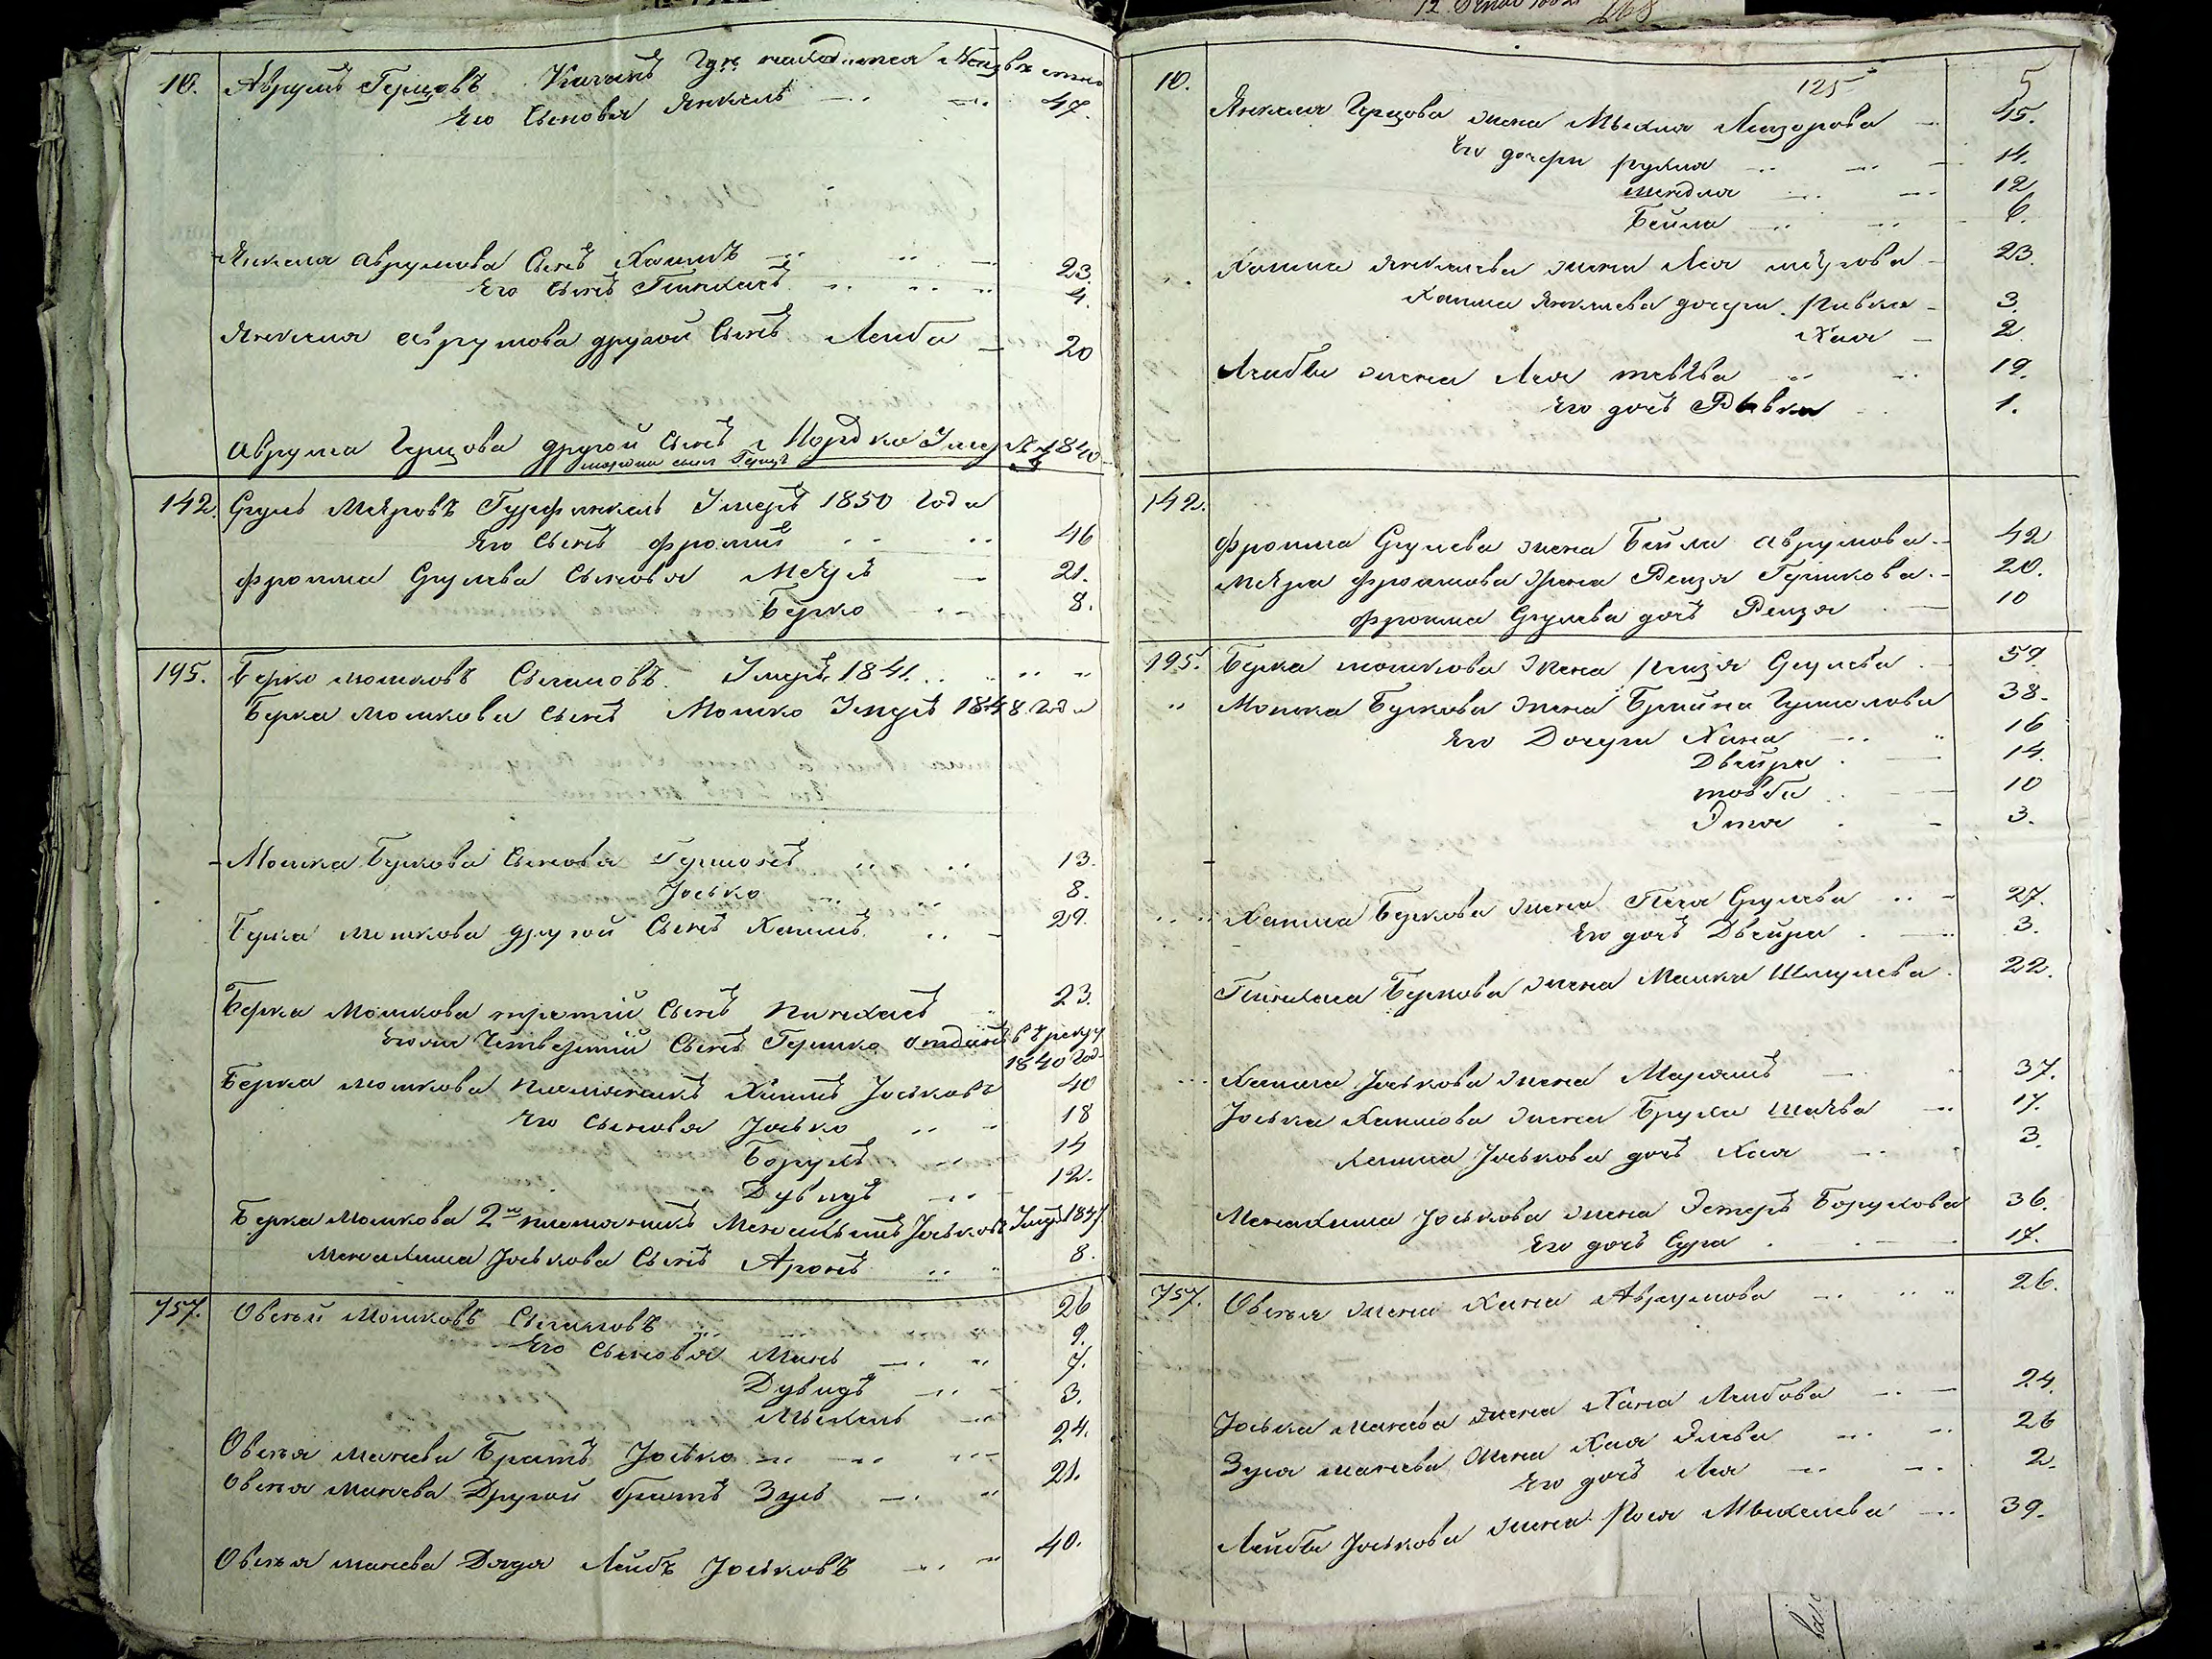 10. Аврумъ Герцовъ Каганъ Где находится Неизвѣстно
Его Сыновья Янкель 47.
Янкеля Аврумова Сынъ Хаимъ 23.
Его Сынъ Пинхасъ 4.
Янкеля Аврумова другой Сынъ Лейба 20
Аврума Герцова другой Сынъ Мордко Умер 1840
142. Сруль Мееровъ Гурфинкель Умеръ 1850 Года
Его Сынъ Фроимъ 46
Фроима Срулева Сыновья Мееръ 21.
Берко 8.
195. Берко Мошковъ Сыгаловъ Умеръ 1841.
Берка Мошкова Сынъ Мошко Умеръ 1848 Года
Мошка Беркова Сыновья Гершонъ 13.
Іосько 8.
Берка Мошкова другой Сынъ Хаимъ 29.
Берка Мошкова третій Сынъ Пинхасъ 23.
Его же Четвертій Сынъ Гершко отданъ въ рекру
1840 Год
Берка Мошкова Племяникъ Хаимъ Іоськовъ 40
Его Сыновья Іосько 18
Борухъ 14
Дувидъ 12.
Берка Мошкова 2й племяникъ Менахимъ Іоськовъ Умеръ 1847
Менахима Іоськова Сынъ Аронъ 8.
757. Овсѣй Мошковъ Сыгаловъ 26
Его Сыновья Манъ 9.
Дувидъ 7.
Мыхель 3.
Овсѣя Манева Братъ Іосько 24.
Овсѣя Манева Другой братъ Зусь 21.
Овсѣя Манева Дядя Лейбъ Іоськовъ 40.
125
10. 5
Янкеля Герцова жена Мыхля Лейзорова 45.
Его дочери Рухля 14.
Шендля 12.
Бейла 6.
Хаима Янкелева жена Лея 23.
Хаима Янкелева дочери Ривка 3.
Хая 2.
Лейбы жена Лея 19.
Его дочъ Ривка 1.
142.
Фроима Срулева жена Бейла Аврумова 42
Меера Фроимова жена Рейзя Гершкова 20.
Фроима Срулева дочъ Рейзя 10
195. Берка Мошкова жена Рейзя Срулева 59.
Мошка Беркова жена Брайна Гершонова 38.
Его Дочери Хана 16
Двейра 14.
Товба 10
Этя 3.
Хаима Беркова жена Песя Срулева 27.
Его дочъ Двейра 3.
Пинхаса Беркова жена Малка Шмулева 22.
Хаима Іоськова жена Маріамъ 37.
Іоська Хаимова жена Бруха 17.
Хаима Іоськова дочъ Хая 3.
Менахима Іоськова жена Эстеръ Борухова 36.
Его дочъ Сура 17.
757. Овсѣя жена Хана Аврумова 26.
Іоська Манева жена Хана Лейбова 24.
Зуся Манева жена Хая Элева 26
Его дочъ Лея 2.
Лейбы Іоськова жена Рося Мыхелева 39.